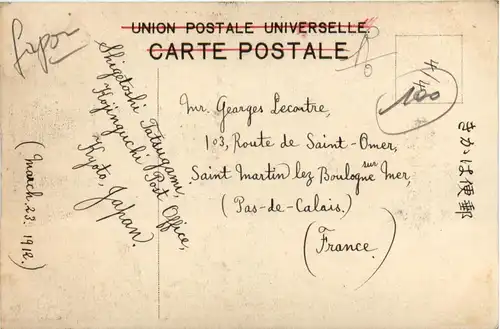 UNION POSTALE UNIVERSELLE
CARTE POSTALE
Japon
Shigetoshi Tatsugami,
Kojinguchi Post Office,
Kyoto, Japan.
(March. 23. 1912.)
Mr. Georges Lecointre,
103, Route de Saint-Omer,
Saint Martin lez Boulogne sur Mer,
(Pas-de-Calais.)
(France.)
100
きかは便郵